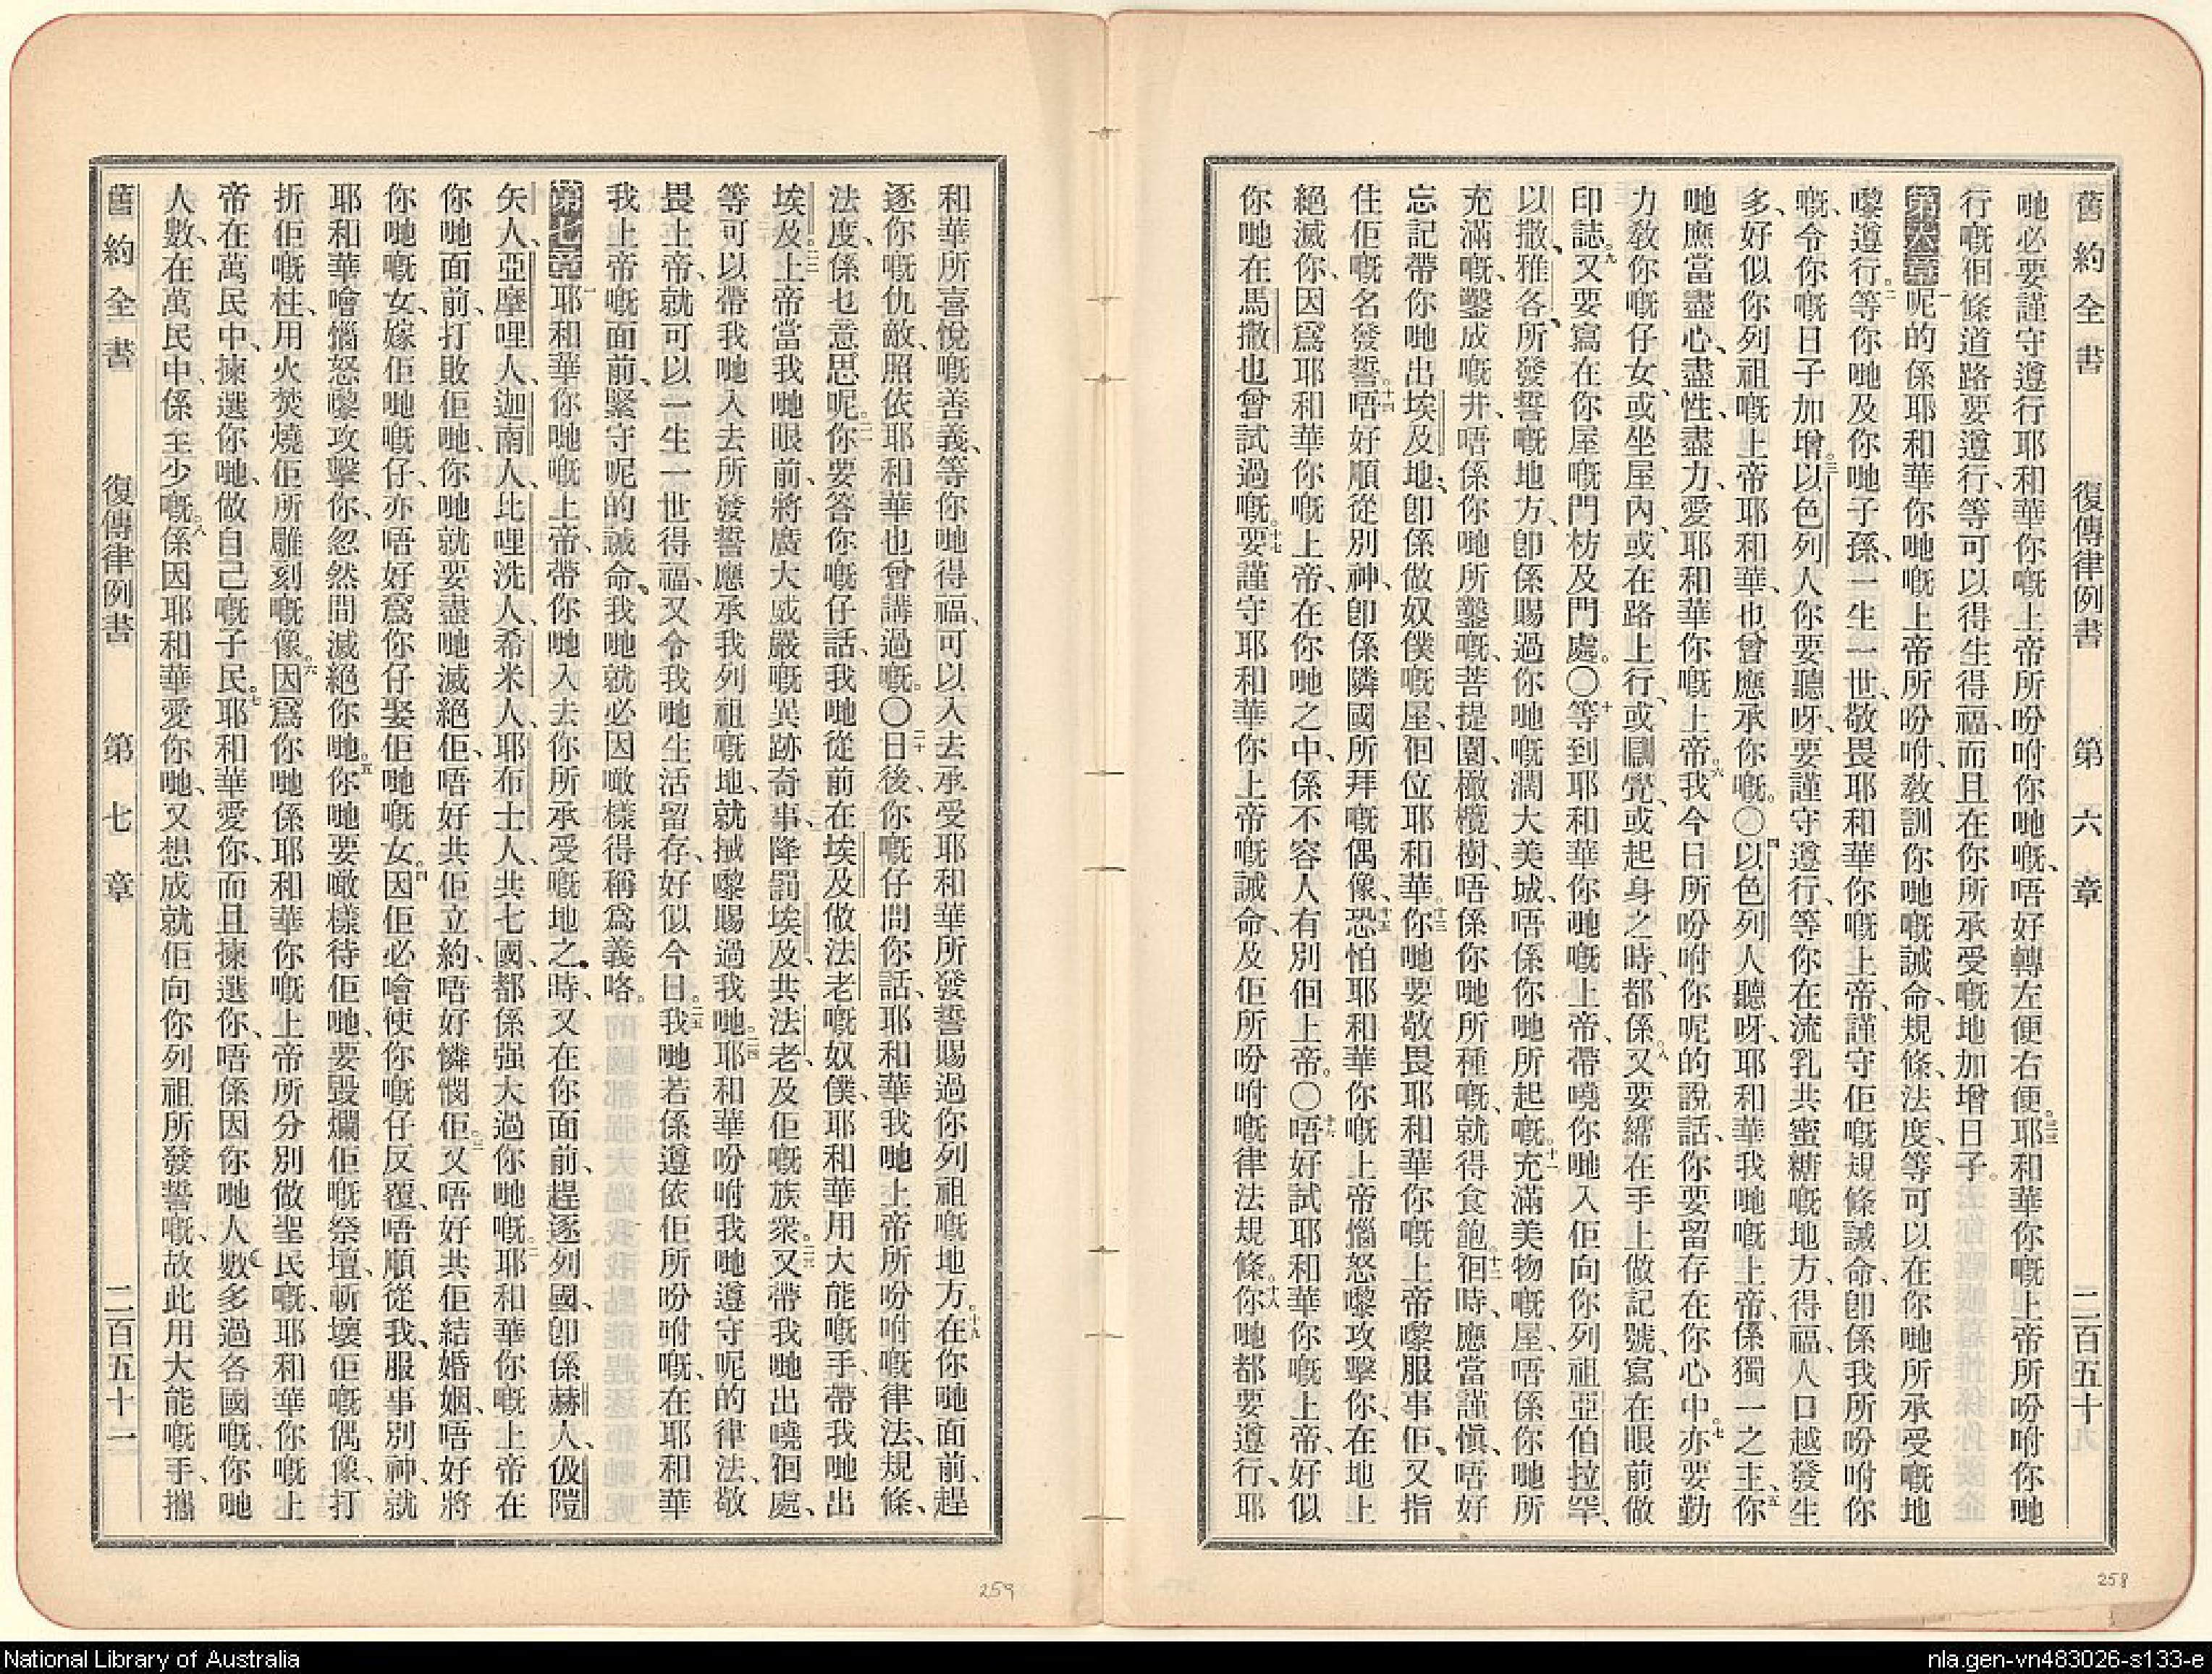 舊約全書 復傳律例書 第六章 二百五十九
哋必要謹守遵行耶和華你嘅上帝所吩咐你哋嘅、唔好轉左便右便。三三耶和華你嘅上帝所吩咐你哋
行嘅個條道路要遵行、等可以得生得福、而且在你所承受嘅地加增日子。
第六章 一呢的係耶和華你哋嘅上帝所吩咐、敎訓你哋嘅誡命、規條、法度、等可以在你哋所承受嘅地
嚟遵行。二等你哋及你哋子孫、一生一世、敬畏耶和華你嘅上帝、謹守佢嘅規條誡命、卽係我所吩咐你
嘅、令你嘅日子加增。三以色列人你要聽呀、要謹守遵行、等你在流乳共蜜糖嘅地方、得福、人口越發生
多、好似你列祖嘅上帝耶和華、也曾應承你嘅。〇四以色列人聽呀、耶和華我哋嘅上帝、係獨一之主、五你
哋應當盡心、盡性、盡力、愛耶和華你嘅上帝。六我今日所吩咐你呢的說話、你要留存在你心中。七亦要勤
力敎你嘅仔女、或坐屋內、或在路上行、或瞓覺、或起身之時、都係。八又要縛在手上做記號、寫在眼前做
印誌。九又要寫在你屋嘅門枋及門處。〇十等到耶和華你哋嘅上帝、帶嘵你哋入佢向你列祖亞伯拉罕、
以撒、雅各、所發誓嘅地方、卽係賜過你哋嘅濶大美城、唔係你哋所起嘅。十一充滿美物嘅屋、唔係你哋所
充滿嘅、鑿成嘅井、唔係你哋所鑿嘅、菩提園、橄欖樹、唔係你哋所種嘅、就得食飽。十二個時、應當謹愼、唔好
忘記帶你哋出埃及地、卽係做奴僕嘅屋、個位耶和華。十三你哋要敬畏耶和華你嘅上帝嚟服事佢、又指
住佢嘅名發誓。十四唔好順從別神、卽係隣國所拜嘅偶像、十五恐怕耶和華你嘅上帝惱怒嚟攻擊你、在地上
絕滅你、因爲耶和華你嘅上帝、在你哋之中、係不容人有別個上帝。〇十六唔好試耶和華你嘅上帝、好似
你哋在馬撒也曾試過嘅。十七要謹守耶和華你上帝嘅誡命、及佢所吩咐嘅律法規條。十八你哋都要遵行、耶
和華所喜悅嘅善義、等你哋得福、可以入去承受耶和華所發誓賜過你列祖嘅地方。十九在你哋面前、趕
逐你嘅仇敵、照依耶和華也曾講過嘅。〇二十日後、你嘅仔問你話、耶和華我哋上帝所吩咐嘅律法、規條、
法度、係乜意思呢。二一你要答你嘅仔話、我哋從前在埃及做法老嘅奴僕、耶和華用大能嘅手、帶我哋出
埃及。二二上帝當我哋眼前、將廣大威嚴嘅異跡奇事、降罰埃及、共法老、及佢嘅族衆。二三又帶我哋出嘵個處、
等可以帶我哋入去所發誓應承我列祖嘅地、就𢫏嚟賜過我哋。二四耶和華吩咐我哋遵守呢的律法、敬
畏上帝、就可以一生一世得福、又令我哋生活留存、好似今日。二五我哋若係遵依佢所吩咐嘅、在耶和華
我上帝嘅面前、緊守呢的誡命、我哋就必因噉樣得稱爲義咯。
第七章 一耶和華你哋嘅上帝、帶你哋入去你所承受嘅地之時、又在你面前、趕逐列國、卽係赫人、伋隑
矢人、亞摩哩人、迦南人、比哩洗人、希米人、耶布士人、共七國、都係强大過你哋嘅。二耶和華你嘅上帝在
你哋面前、打敗佢哋、你哋就要盡哋滅絕佢、唔好共佢立約、唔好憐憫佢。三又唔好共佢結婚姻、唔好將
你哋嘅女、嫁佢哋嘅仔、亦唔好爲你仔娶佢哋嘅女。四因佢必噲使你嘅仔反覆、唔順從我、服事別神、就
耶和華噲惱怒嚟攻擊你、忽然間滅絕你哋。五你哋要噉樣待佢哋、要毀爛佢嘅祭壇、斬壞佢嘅偶像、打
折佢嘅柱、用火焚燒佢所雕刻嘅像。六因爲你哋係耶和華你嘅上帝所分別做聖民嘅、耶和華你嘅上
帝在萬民中、揀選你哋、做自己嘅子民。七耶和華愛你、而且揀選你、唔係因你哋人數多過各國嘅、你哋
人數、在萬民中、係至少嘅。八係因耶和華愛你哋、又想成就佢向你列祖所發誓嘅、故此用大能嘅手、攜
舊約全書 復傳律例書 第七章 二百五十一
258
259
National Library of Australia
nla.gen-vn483026-s133-e